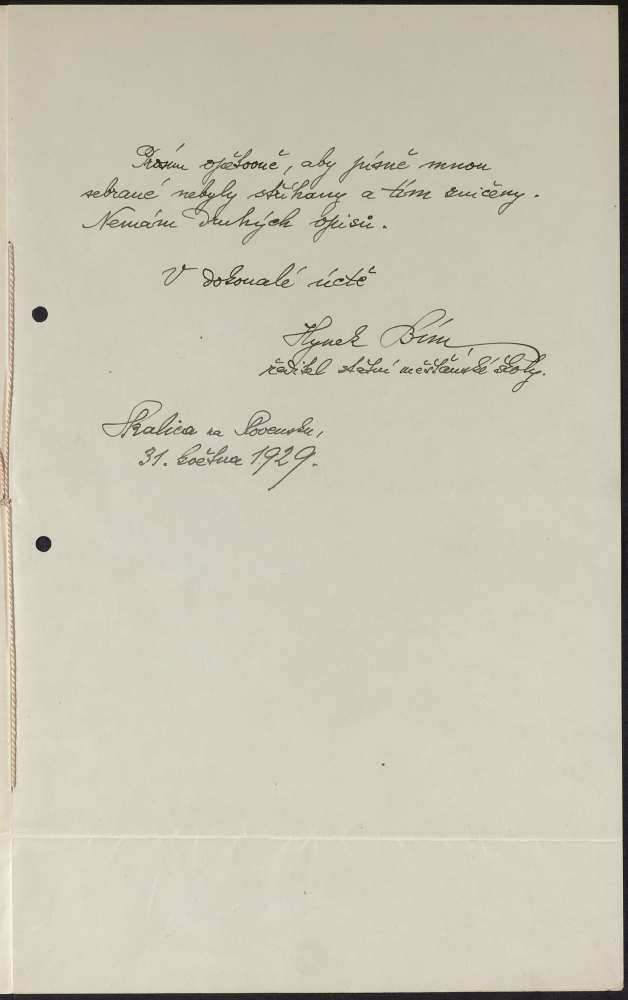 Prosím opětovně, aby písně mnou
sebrané nebyly stříhany a tím zničeny.
Nemám druhých opisů.
V dokonalé úctě
Hynek Bím
ředitel státní měšťanské školy.
Skalica na Slovensku,
31. května 1929.